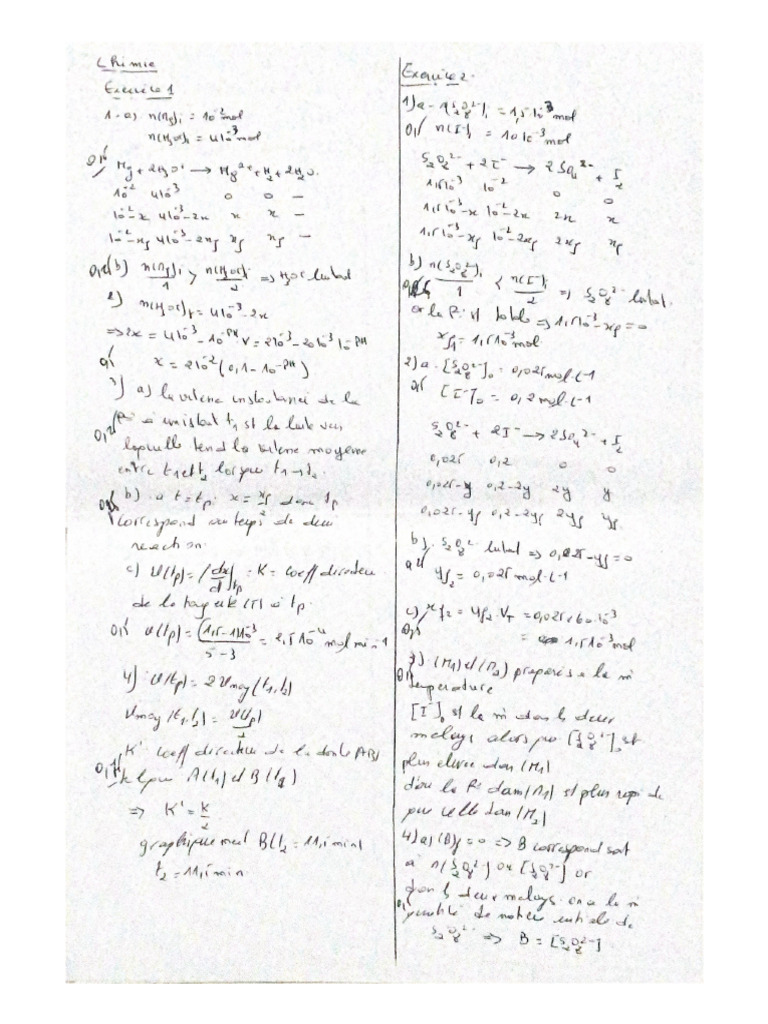 Chimie
Exercice 1
1-a) n(Mg)i = 10^-2 mol
n(H3O+)i = 4 10^-3 mol
Mg + 2H3O+ → Mg2+ + H2 + 2H2O
10^-2 4 10^-3 0 0 –
10^-2-x 4 10^-3-2x x x –
10^-2-xf 4 10^-3-2xf xf xf –
b) n(Mg)i/1 > n(H3O+)i/2 => H3O+ limitant
2) n(H3O+)t = 4 10^-3-2x
=> 2x = 4 10^-3-10^-PH V = 2 10^-3-20 10^-3 10^-PH
x = 2 10^-2 (0,1-10^-PH)
a) la vitesse instantanée de la
R° à un instant t1 est la limite vers
laquelle tend la vitesse moyenne
entre t1 et t2 lorsque t1→t2.
b) à t = tp: x = xf/2 donc tp
correspond au temps de demi
reaction.
c) v(tp) = (dx/dt)tp = K = coeff directeur
de la tangente (T) à tp.
v(tp) = (1,5-1)10^-3/5-3 = 2,5 10^-4 mol min-1
4) v(tp) = 2 Vmoy(t1,t2)
Vmoy(t1,t2) = v(tp)/2
K' coeff directeur de la droite (AB)
A(t1) et B(t2)
=> K' = K/2
graphiquement B(t2 = 11,5 min)
t2 = 11,5 min
Exercice 2.
1) a - n(S2O8^2-)i = 1,5 10^-3 mol
n(I-)i = 10 10^-3 mol
S2O8^2- + 2I- → 2SO4^2- + I2
1,5 10^-3 10^-2 0 0
1,5 10^-3-x 10^-2-2x 2x x
1,5 10^-3-xf 10^-2-2xf 2xf xf
b) n(S2O8^2-)i/1 < n(I-)i/2 => S2O8^2- limitant.
or la R° est totale => 1,5 10^-3-xf = 0
xf1 = 1,5 10^-3 mol.
2) a. [S2O8^2-]0 = 0,025 mol.L-1
[I-]0 = 0,2 mol.L-1
S2O8^2- + 2I- → 2SO4^2- + I2
0,025 0,2 0 0
0,025-y 0,2-2y 2y y
0,025-yf 0,2-2yf 2yf yf
b). S2O8^2- limitant => 0,025-yf = 0
yf2 = 0,025 mol.L-1
c) xf2 = yf2.VT = 0,025 x 60.10^-3
= 1,5 10^-3 mol
3). (M1) et (M2) préparés à la m̂
température
[I-]0 est la m̂ dans les deux
melanges alors que [S2O8^2-]0 est
plus elevée dans (M1)
d'où la R° dans (M1) est plus rapide
que celle dans (M2)
4) a) (B)f = 0 => B correspond soit
à n(S2O8^2-) ou [S2O8^2-] or
dans les deux melanges on a la m̂
quantité de matière initiale de
S2O8^2- => B = [S2O8^2-]